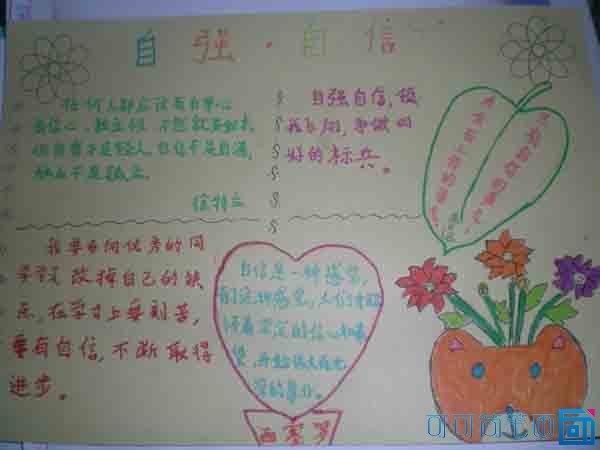 自强·自信
任何人都应该有自尊心
自信心,独立性,不然就是奴才。
但自尊不是轻人,自信不是自满,
独立不是孤立。
徐特立
自强自信,放
我飞翔,争做
好的标兵。
我要向优秀的同
学学习,改掉自己的缺
点,在学习上要刻苦,
要有自信,不断取得
进步。
自信是一种感觉,
有了这种感觉,人们才能
怀着坚定的信心和希
望,开始伟大而光
荣的事业。
西塞罗
可可简笔画